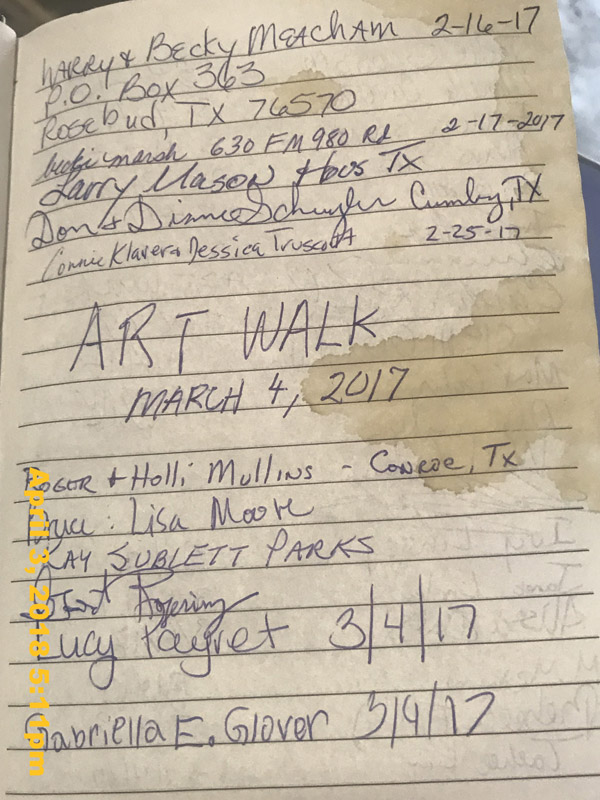 HARRY & BECKY MEACHAM 2-16-17
P.O. Box 363
Rosebud, TX 76570
marsh 630 FM 980 Rd 2-17-2017
Larry Mason TX
Don & Dianne Schuyler Cumby, TX
Connie Klaver & Jessica Truscott 2-25-17
ART WALK
MARCH 4, 2017
ROGER & Holli Mullins - CONROE, TX
Lisa Moore
KAY SUBLETT PARKS
Lucy 3/4/17
Gabriella E. Glover 3/4/17
April 3, 2018 5:11 pm